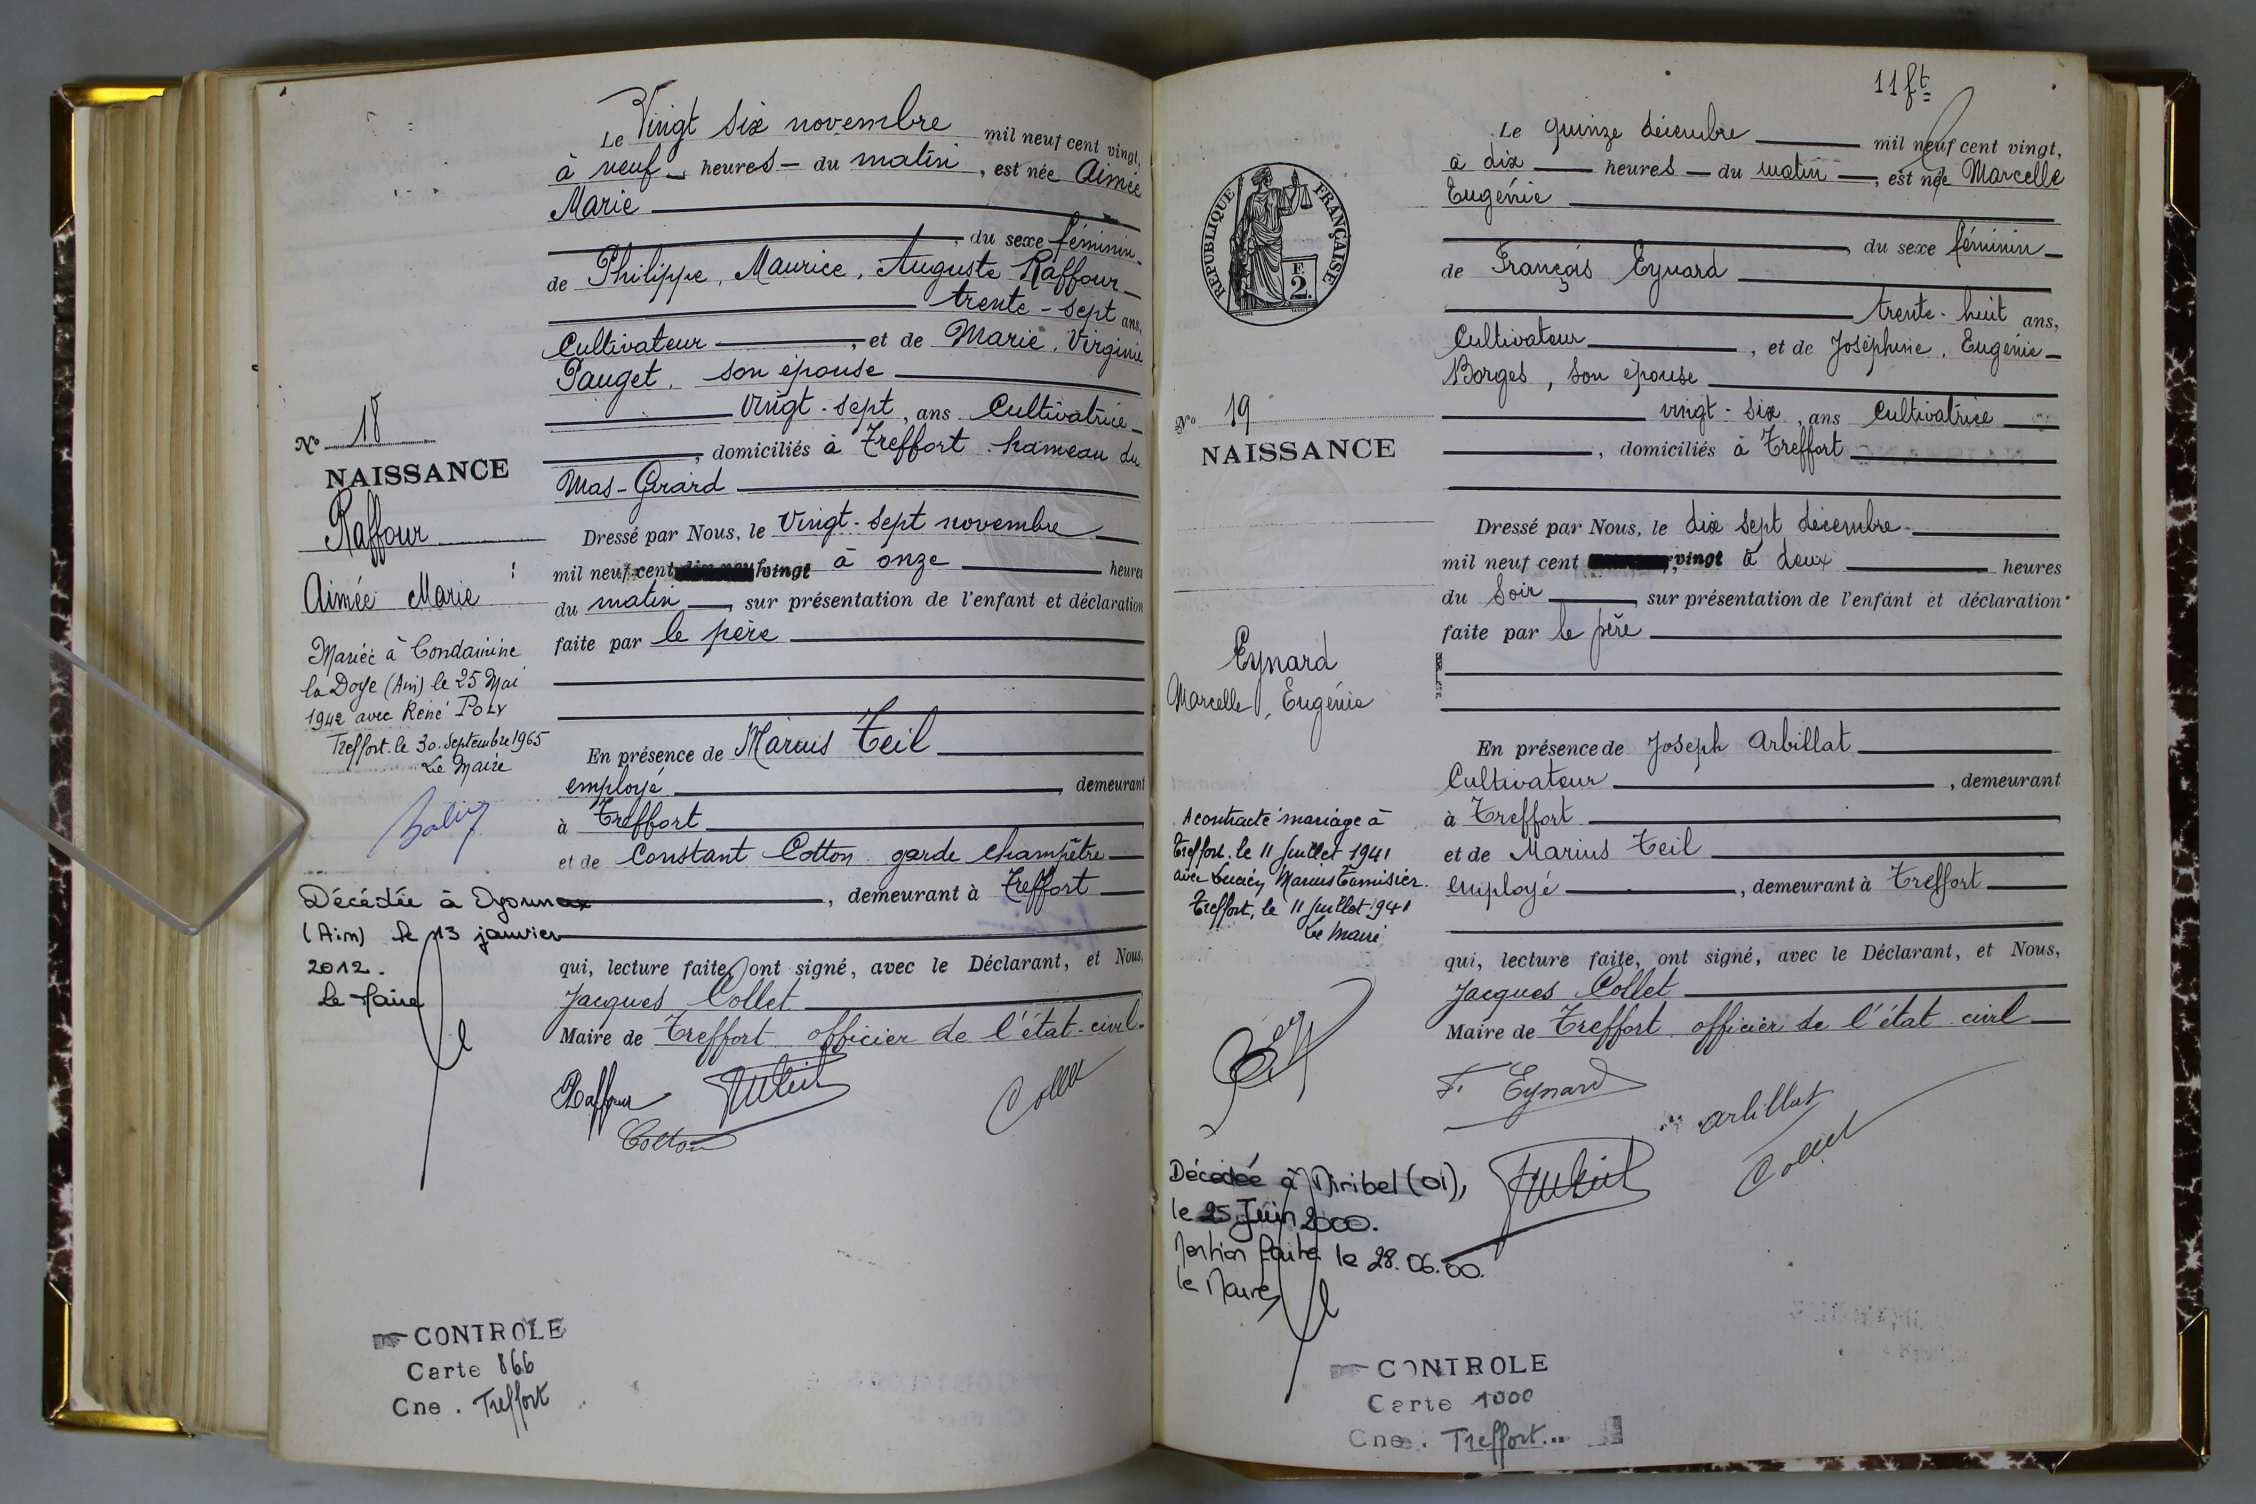 Le Vingt Six novembre mil neuf cent vingt,
à neuf heures du matin, est née Aimée
Marie
, du sexe féminin
de Philippe, Maurice, Auguste Raffour
trente-sept ans,
Cultivateur, et de Marie, Virginie
Pauget, son épouse
vingt-sept, ans Cultivatrice
, domiciliés à Treffort hameau du
Mas-Girard
Dressé par Nous, le Vingt-sept novembre
mil neuf cent vingt à onze heures
du matin, sur présentation de l'enfant et déclaration
faite par le père
En présence de Marius Teil
employé, demeurant
à Treffort
et de Constant Cotton garde champêtre
, demeurant à Treffort
qui, lecture faite, ont signé, avec le Déclarant, et Nous,
Jacques Collet
Maire de Treffort officier de l'état-civil
Raffour
Cotton
Collet
No 18
NAISSANCE
Raffour
Aimée Marie
Mariée à Condamine
la Doye (Ain) le 25 Mai
1942 avec René Poly
Treffort le 30 Septembre 1965
Le Maire
Décédée à Oyonnax
(Ain) le 13 janvier
2012.
Le Maire
CONTROLE
Carte 866
Cne. Treffort
11 ft
Le quinze décembre mil neuf cent vingt,
à dix heures du matin, est née Marcelle
Eugénie
, du sexe féminin
de François Eynard
trente-huit ans,
Cultivateur, et de Joséphine, Eugénie
Borges, son épouse
vingt-six, ans Cultivatrice
, domiciliés à Treffort
Dressé par Nous, le dix sept décembre
mil neuf cent vingt à deux heures
du Soir, sur présentation de l'enfant et déclaration
faite par le père
En présence de Joseph Arbillat
Cultivateur, demeurant
à Treffort
et de Marius Teil
employé, demeurant à Treffort
qui, lecture faite, ont signé, avec le Déclarant, et Nous,
Jacques Collet
Maire de Treffort officier de l'état civil
F. Eynard
Arbillat
Collet
REPUBLIQUE FRANÇAISE
F.
2.
No 19
NAISSANCE
Eynard
Marcelle, Eugénie
A contracté mariage à
Treffort, le 11 Juillet 1941
avec Lucien Marius Tamisier.
Treffort, le 11 Juillet 1941
Le Maire
Décédée à Miribel (01),
le 25 Juin 2000.
Mention faite le 28.06.00.
le Maire,
CONTROLE
Carte 1000
Cne. Treffort..